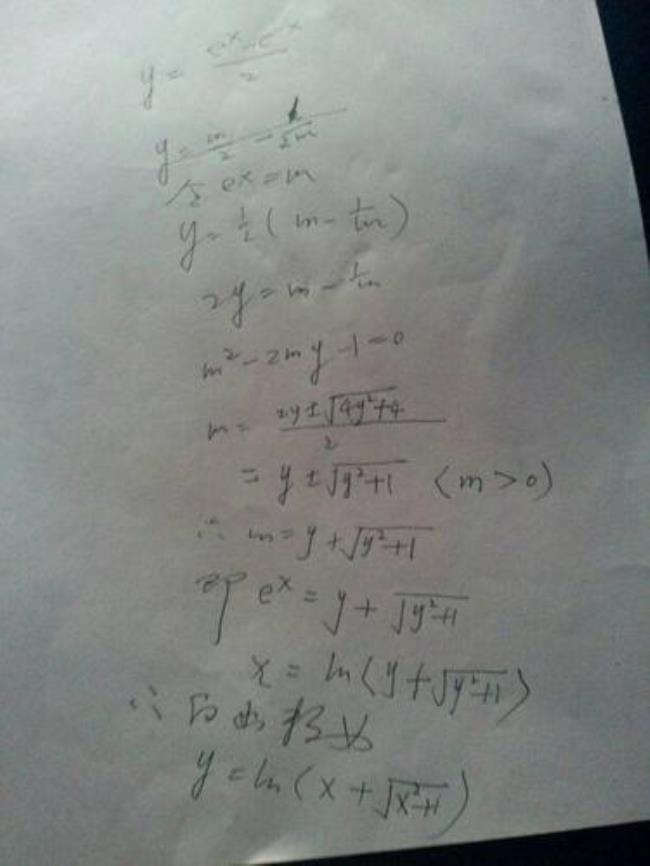 y = (e^x - e^-x)/2
y = m/2 - 1/2m
令 e^x = m
y = 1/2 ( m - 1/m )
2y = m - 1/m
m² - 2my - 1 = 0
m = (2y ± √(4y²+4))/2
= y ± √(y²+1) (m > 0)
∴ m = y + √(y²+1)
即 e^x = y + √(y²+1)
x = ln(y + √(y²+1))
∴ 反函数为
y = ln(x + √(x²+1))